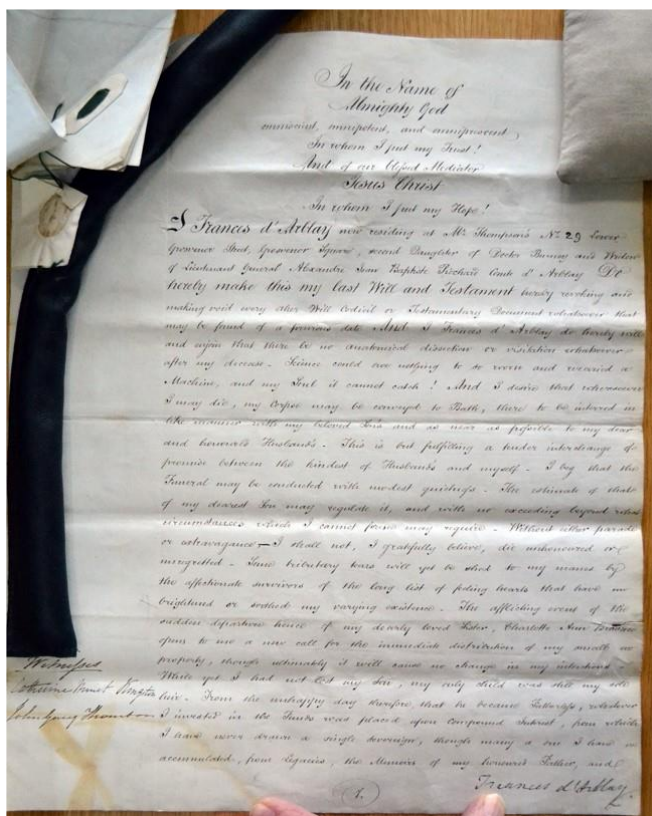 In the Name of
Almighty God
omniscient, omnipotent, and omnipresent
In whom I put my Trust!
And of our Blessed Mediator
Jesus Christ
In whom I put my Hope!
I Frances d'Arblay now residing at Mr Thompson's No 29 Lower
Grosvenor Street, Grosvenor Square, second Daughter of Doctor Burney and Widow
of Lieutenant General Alexandre Jean Baptiste Piochard Comte d'Arblay Do
hereby make this my last Will and Testament hereby revoking and
making void every other Will Codicil or Testamentary Document whatsoever that
may be found of a previous date And I Frances d'Arblay do hereby will
and enjoin that there be no anatomical dissection or visitation whatsoever
after my decease. Science could owe nothing to so worn and wearied a
Machine, and my Soul it cannot catch! And I desire that wheresoever
I may die, my Corpse may be conveyed to Bath, there to be interred in
like manner with my beloved Son and as near as possible to my dear
and honoured Husband's. This is but fulfilling a tender interchange of
promise between the kindest of Husbands and myself. I beg that the
Funeral may be conducted with modest quietness. The estimate of that
of my dearest Son may regulate it, and with no exceeding beyond what
circumstances which I cannot foresee may require. Without other parade
or extravagance — I shall not, I gratefully believe, die unhonoured or
unregretted. Some tributary tears will yet be shed to my manes by
the affectionate survivors of the long list of feeling hearts that have
brightened or soothed my varying existence. The afflicting event of the
sudden departure hence of my dearly loved Sister, Charlotte Ann Broome
opens to me a new call for the immediate distribution of my small
property, though ultimately it will cause no change in my intentions.
While yet I had not lost my Son, my only child was still my sole
heir. From the unhappy day therefore that he became Fatherless, whatever
I invested in the Funds was placed upon Compound Interest, from which
I have never drawn a single sovereign, though many a one I have
accumulated, from legacies, the Memoirs of my honoured Father, and
Witnesses
John
Frances d'Arblay.
1.